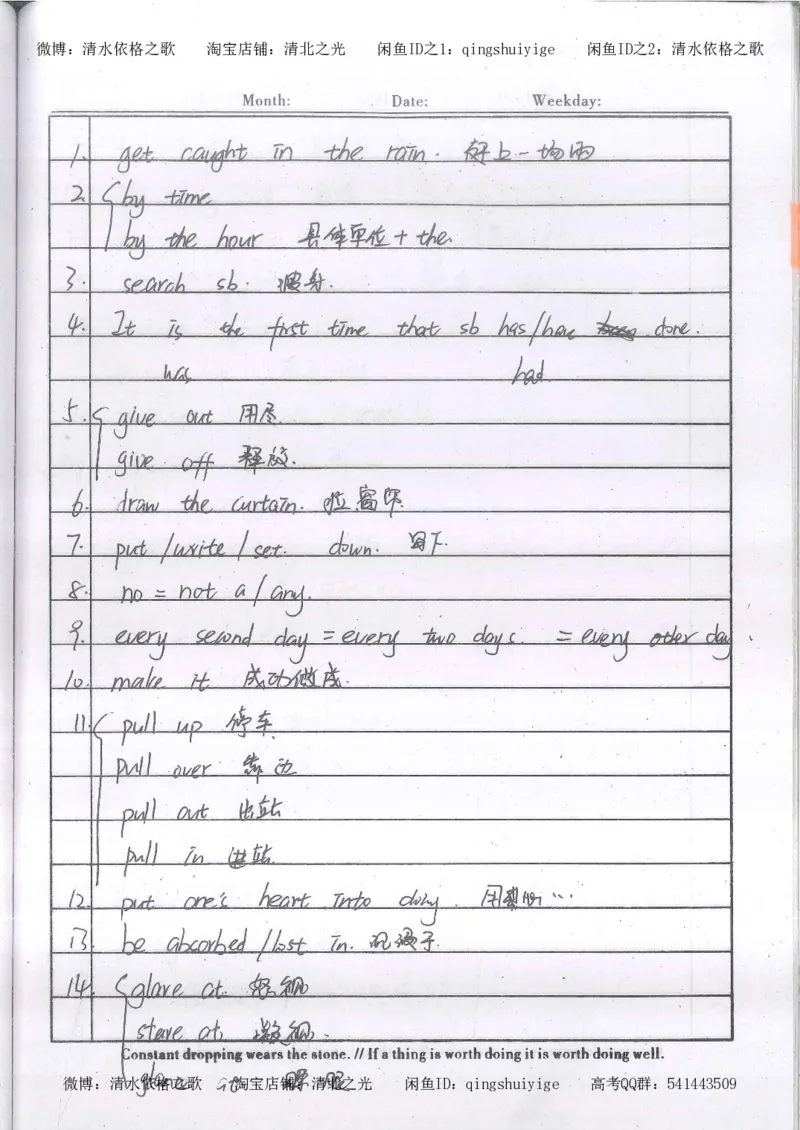 微博：清水依格之歌 淘宝店铺：清北之光 闲鱼ID之1：qingshuiyige 闲鱼ID之2：清水依格之歌
Month: Date: Weekday:
1. get caught in the rain. 赶上一场雨
2. by time
by the hour 具体单位 + the
3. search sb. 搜身.
4. It is the first time that sb has/have done.
was had
5. give out 用尽.
give off 释放.
6. draw the curtain. 拉窗帘
7. put /write / set. down. 写下.
8. no = not a / any.
9. every second day = every two days. = every other day.
10. make it 成功做成.
11. pull up 停车
pull over 靠边
pull out 出站
pull in 进站.
12. put one's heart into doing. 用 …
13. be absorbed /lost in. 沉浸于.
14. glare at 怒视
stare at 凝视.
Constant dropping wears the stone. // If a thing is worth doing it is worth doing well.
glance at
微博：清水依格之歌 淘宝店铺：清北之光 闲鱼ID：qingshuiyige 高考QQ群：541443509